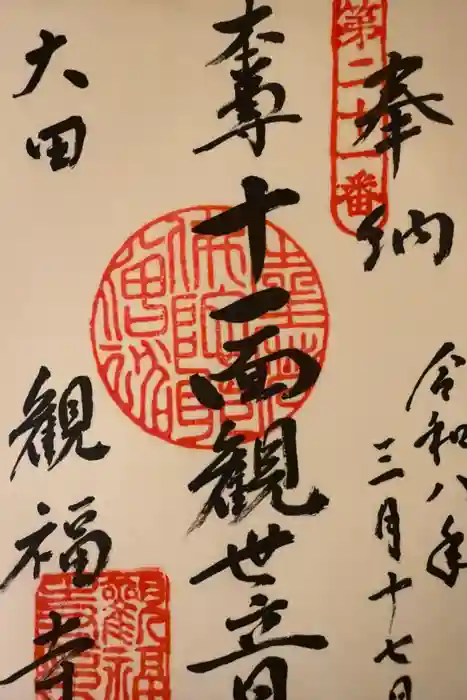 奉納
第二十一番
令和八年
三月十七日
本尊 十一面観世音
大田 観福寺